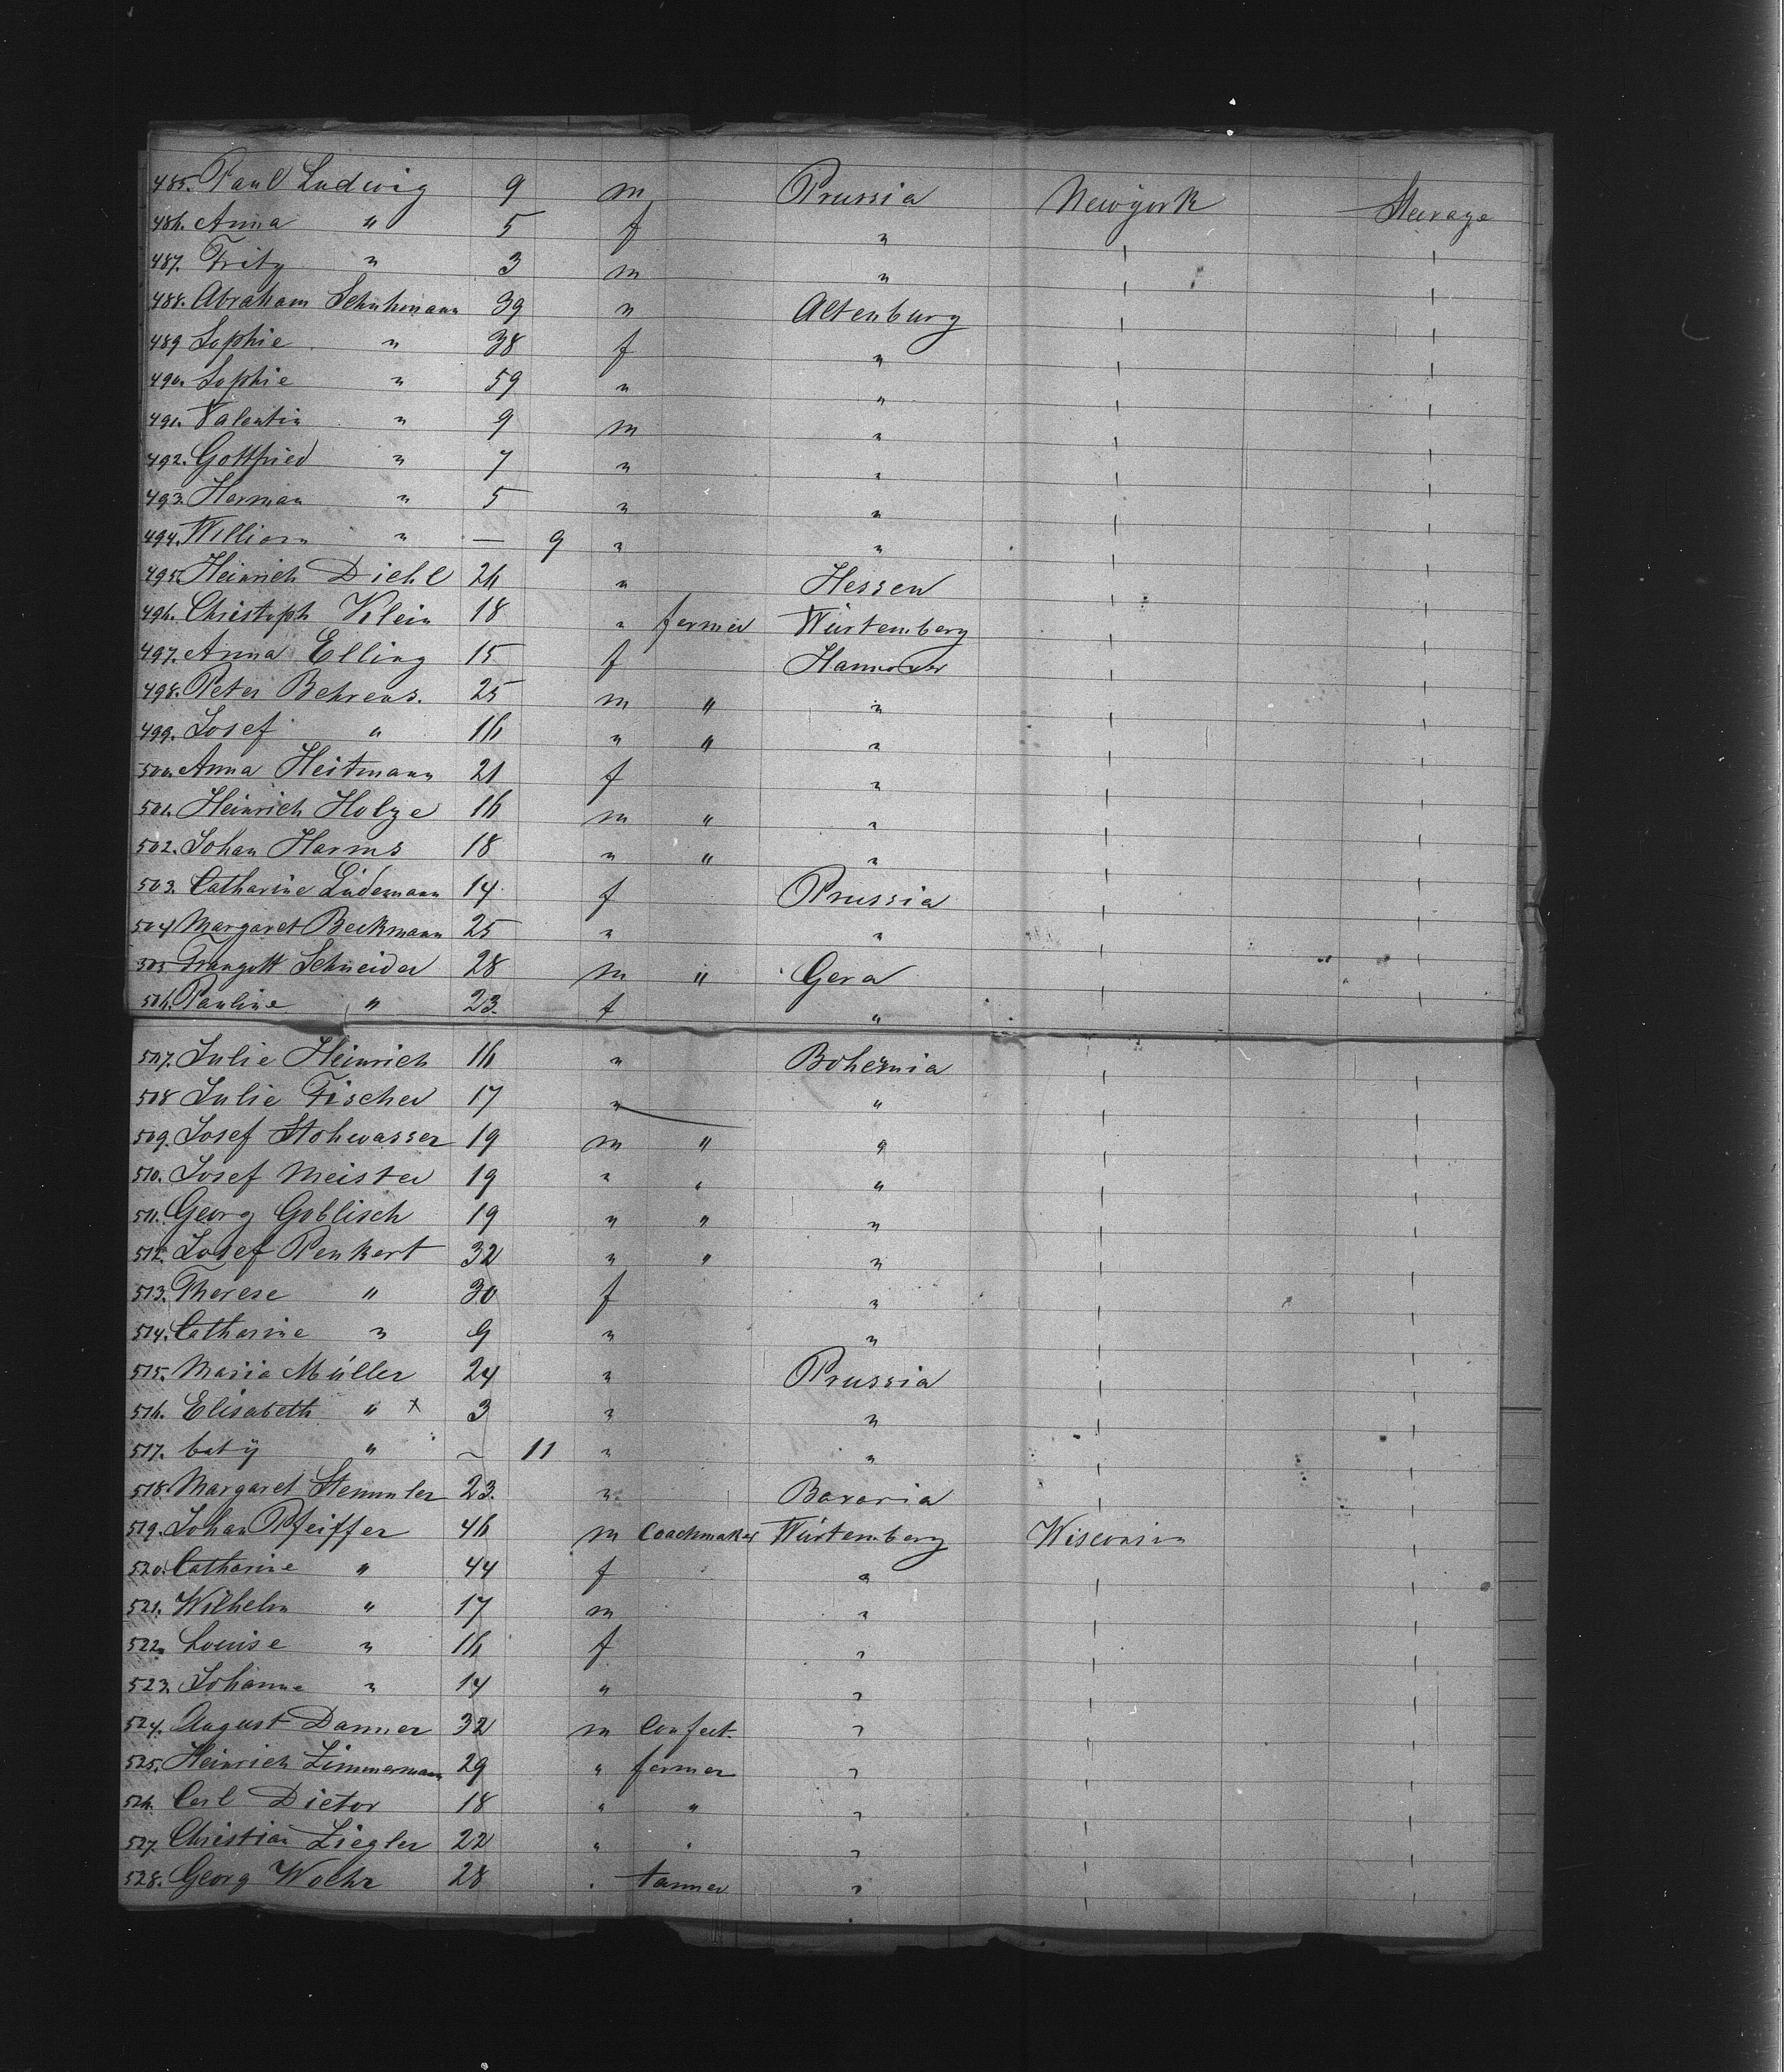 485. Paul Ludwig 9 m Prussia Newyork Steerage
486. Anna " 5 f " | |
487. Fritz " 3 m " | |
488. Abraham Schuhmann 39 " Altenburg | |
489 Sophie " 38 f " | |
490. Sophie " 59 " " | |
491. Valentin " 9 m " | |
492. Gottfried " 7 " " | |
493. Herman " 5 " " | |
494. William " — 9 " " | |
495. Heinrich Diehl 26 " Hessen | |
496. Christoph Klein 18 " farmer Würtemberg | |
497. Anna Elling 15 f Hannover | |
498. Peter Behrens. 25 m " " | |
499. Josef " 16 " " " | |
500. Anna Heitmann 21 f " | |
501. Heinrich Holze 16 m " " | |
502. Johan Harms 18 " " " | |
503. Catharine Lüdemann 14 f Prussia | |
504 Margaret Beckmann 25 " " | |
505 Traugott Schneider 28 m " Gera | |
506. Pauline " 23. f " | |
507. Julie Heinrich 16 " Bohemia | |
508 Julie Fischer 17 " " | |
509. Josef Stohwasser 19 m " " | |
510. Josef Meister 19 " " " | |
511. Georg Goblisch 19 " " " | |
512. Josef Penkert 32 " " " | |
513. Therese " 30 f " | |
514. Catharine " 9 " " | |
515. Maria Müller 24 " Prussia | |
516. Elisabeth " x 3 " " | |
517. baby " — 11 " " | |
518. Margaret Stemmler 23. " Bavaria | |
519. Johan Pfeiffer 46 m Coachmaker Würtemberg Wisconsin |
520. Catharine " 44 f " | |
521. Wilhelm " 17 m " | |
522. Louise " 16 f " | |
523. Johanne " 14 " " | |
524. August Danner 32 m Confect. " | |
525. Heinrich Zimmermann 29 " farmer " | |
526. Carl Dietor 18 " " " | |
527. Christian Ziegler 22 " " " | |
528. Georg Woehr 28 " tanner " | |